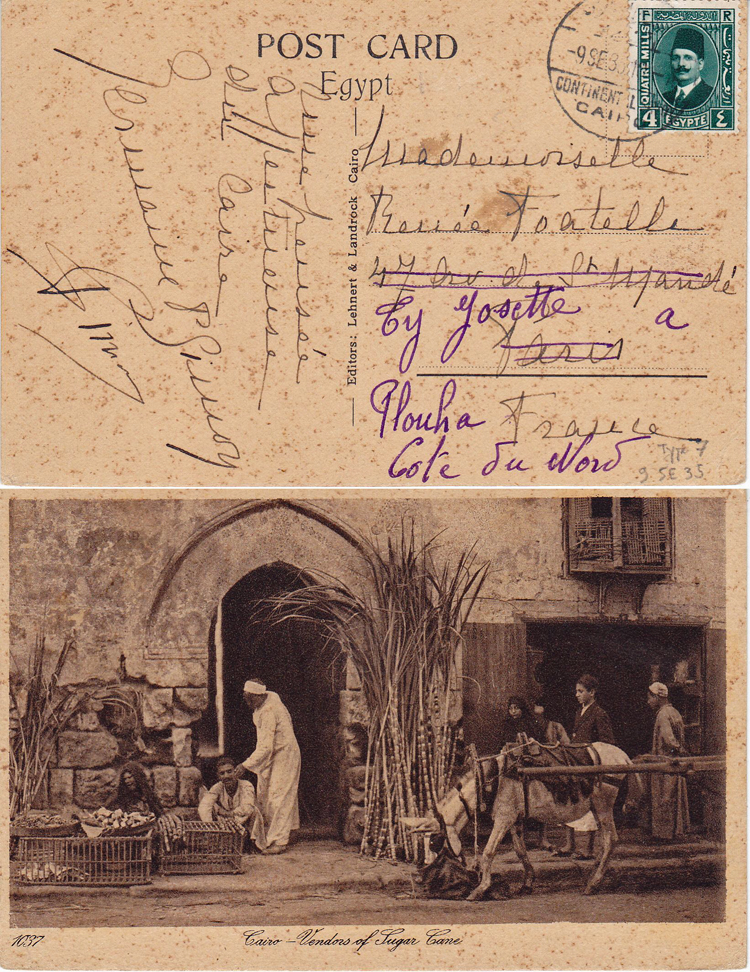 POST CARD
Egypt
-9 SE 3
CONTINENTAL
CAIRO
F
R
QUATRE MILLS
4
EGYPTE
٤
Une pensée
affectueuse
du Caire
Germaine P Simon
Editors: Lehnert & Landrock Cairo
Mademoiselle
Renée Foatelli
47 Av. d. St Mandé
Ty Josette a
Paris
Plouha
France
Cote du Nord
Type 7
9 SE 35
1037
Cairo – Vendors of Sugar Cane